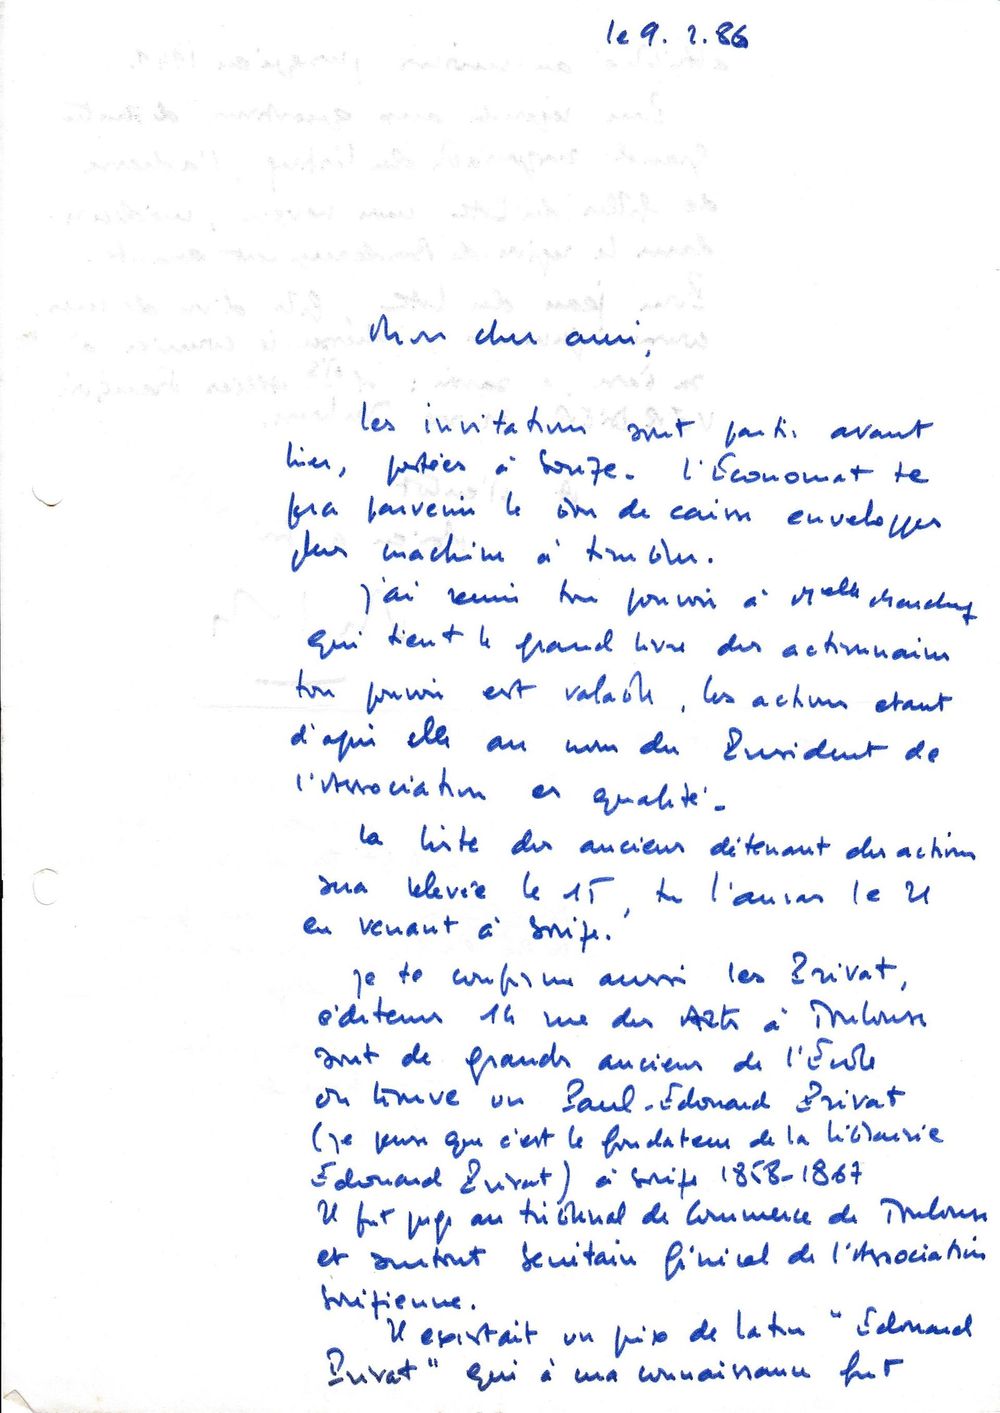 le 9. 2. 86
Mon cher ami,
Les invitations sont partis avant
hier, postées à Sorèze. L'Économat te
fera parvenir le bon de caisse enveloppes
pour machine à timbrer.
J'ai remis ton pouvoir à Melle
qui tient le grand livre des actionnaires
ton pouvoir est valable, les actions etant
d'après elle au nom du President de
l'Association es qualité.
La liste des anciens détenant des actions
sera relevée le 15, tu l'auras le 21
en venant à Sorèze.
Je te confirme aussi les Privat,
éditeurs 14 rue des Arts à Toulouse
sont de grands anciens de l'École
on trouve un Paul-Édouard Privat
(je pense que c'est le fondateur de la librairie
Édouard Privat) à Sorèze 1858-1867
Il fut juge au tribunal de Commerce de Toulouse
et surtout Secrétaire Général de l'Association
Sorézienne.
Il existait un prix de latin "Édouard
Privat" qui à ma connaissance fut